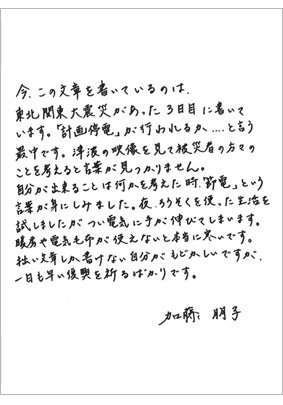 今、この文章を書いているのは、
東北関東大震災があった3日目に書いて
います。「計画停電」が行われるか....と言う
最中です。津波の映像を見て被災者の方々の
ことを考えると言葉が見つかりません。
自分が出来ることは何かを考えた時、「節電」という
言葉が身にしみました。夜、ろうそくを使った生活を
試しましたが つい電気に手が伸びてしまいます。
暖房や電気毛布が使えないと本当に寒いです。
拙い文章しか書けない自分が もどかしいですが、
一日も早い復興を祈るばかりです。
加藤 朋子